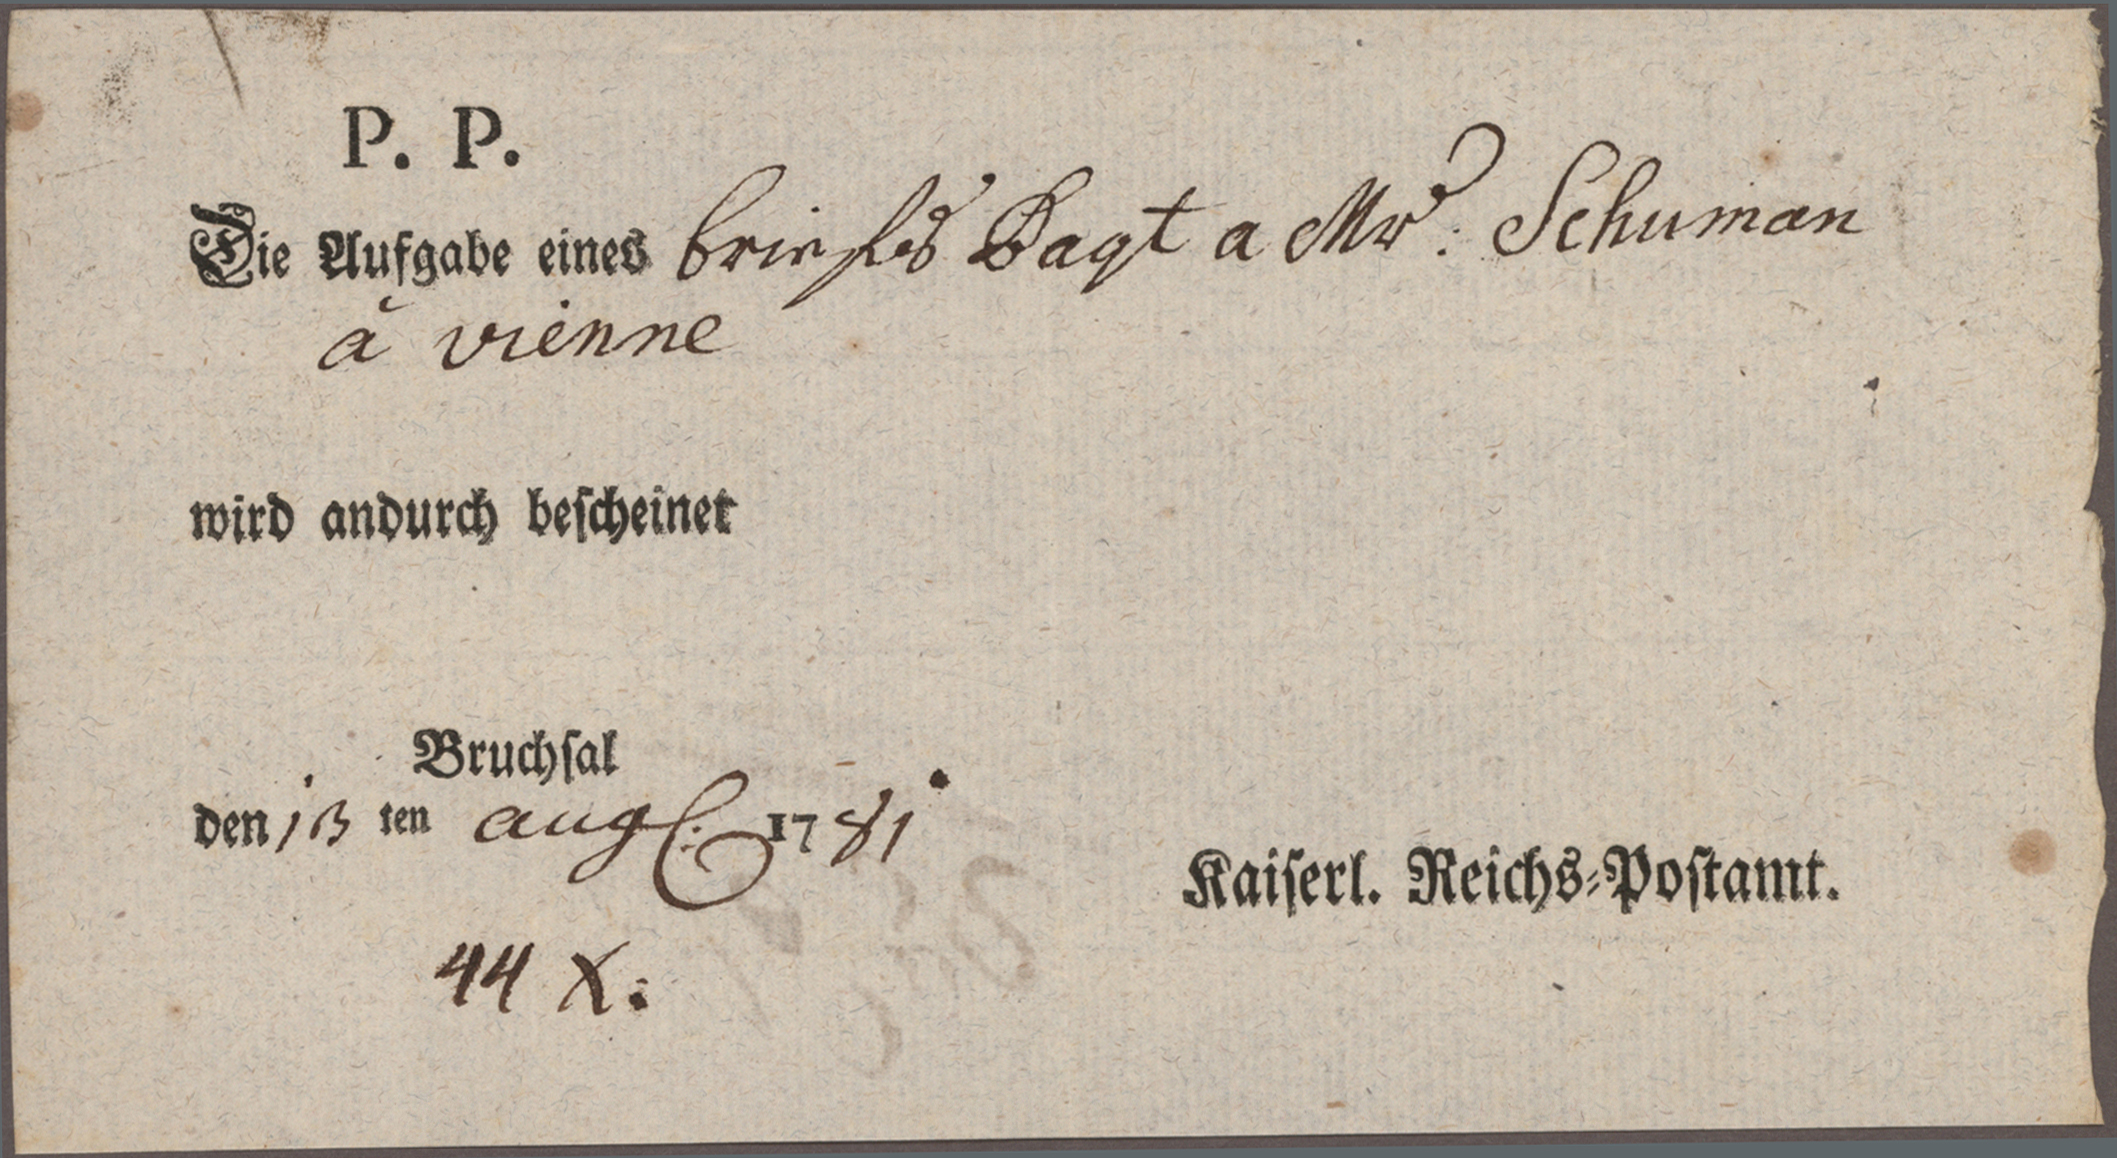 P. P.
Die Aufgabe eines briefes Baqt a Mr: Schuman
à vienne
wird andurch bescheinet
Bruchsal
den 13 ten aug. 1781
Kaiserl. Reichs-Postamt.
44 X.